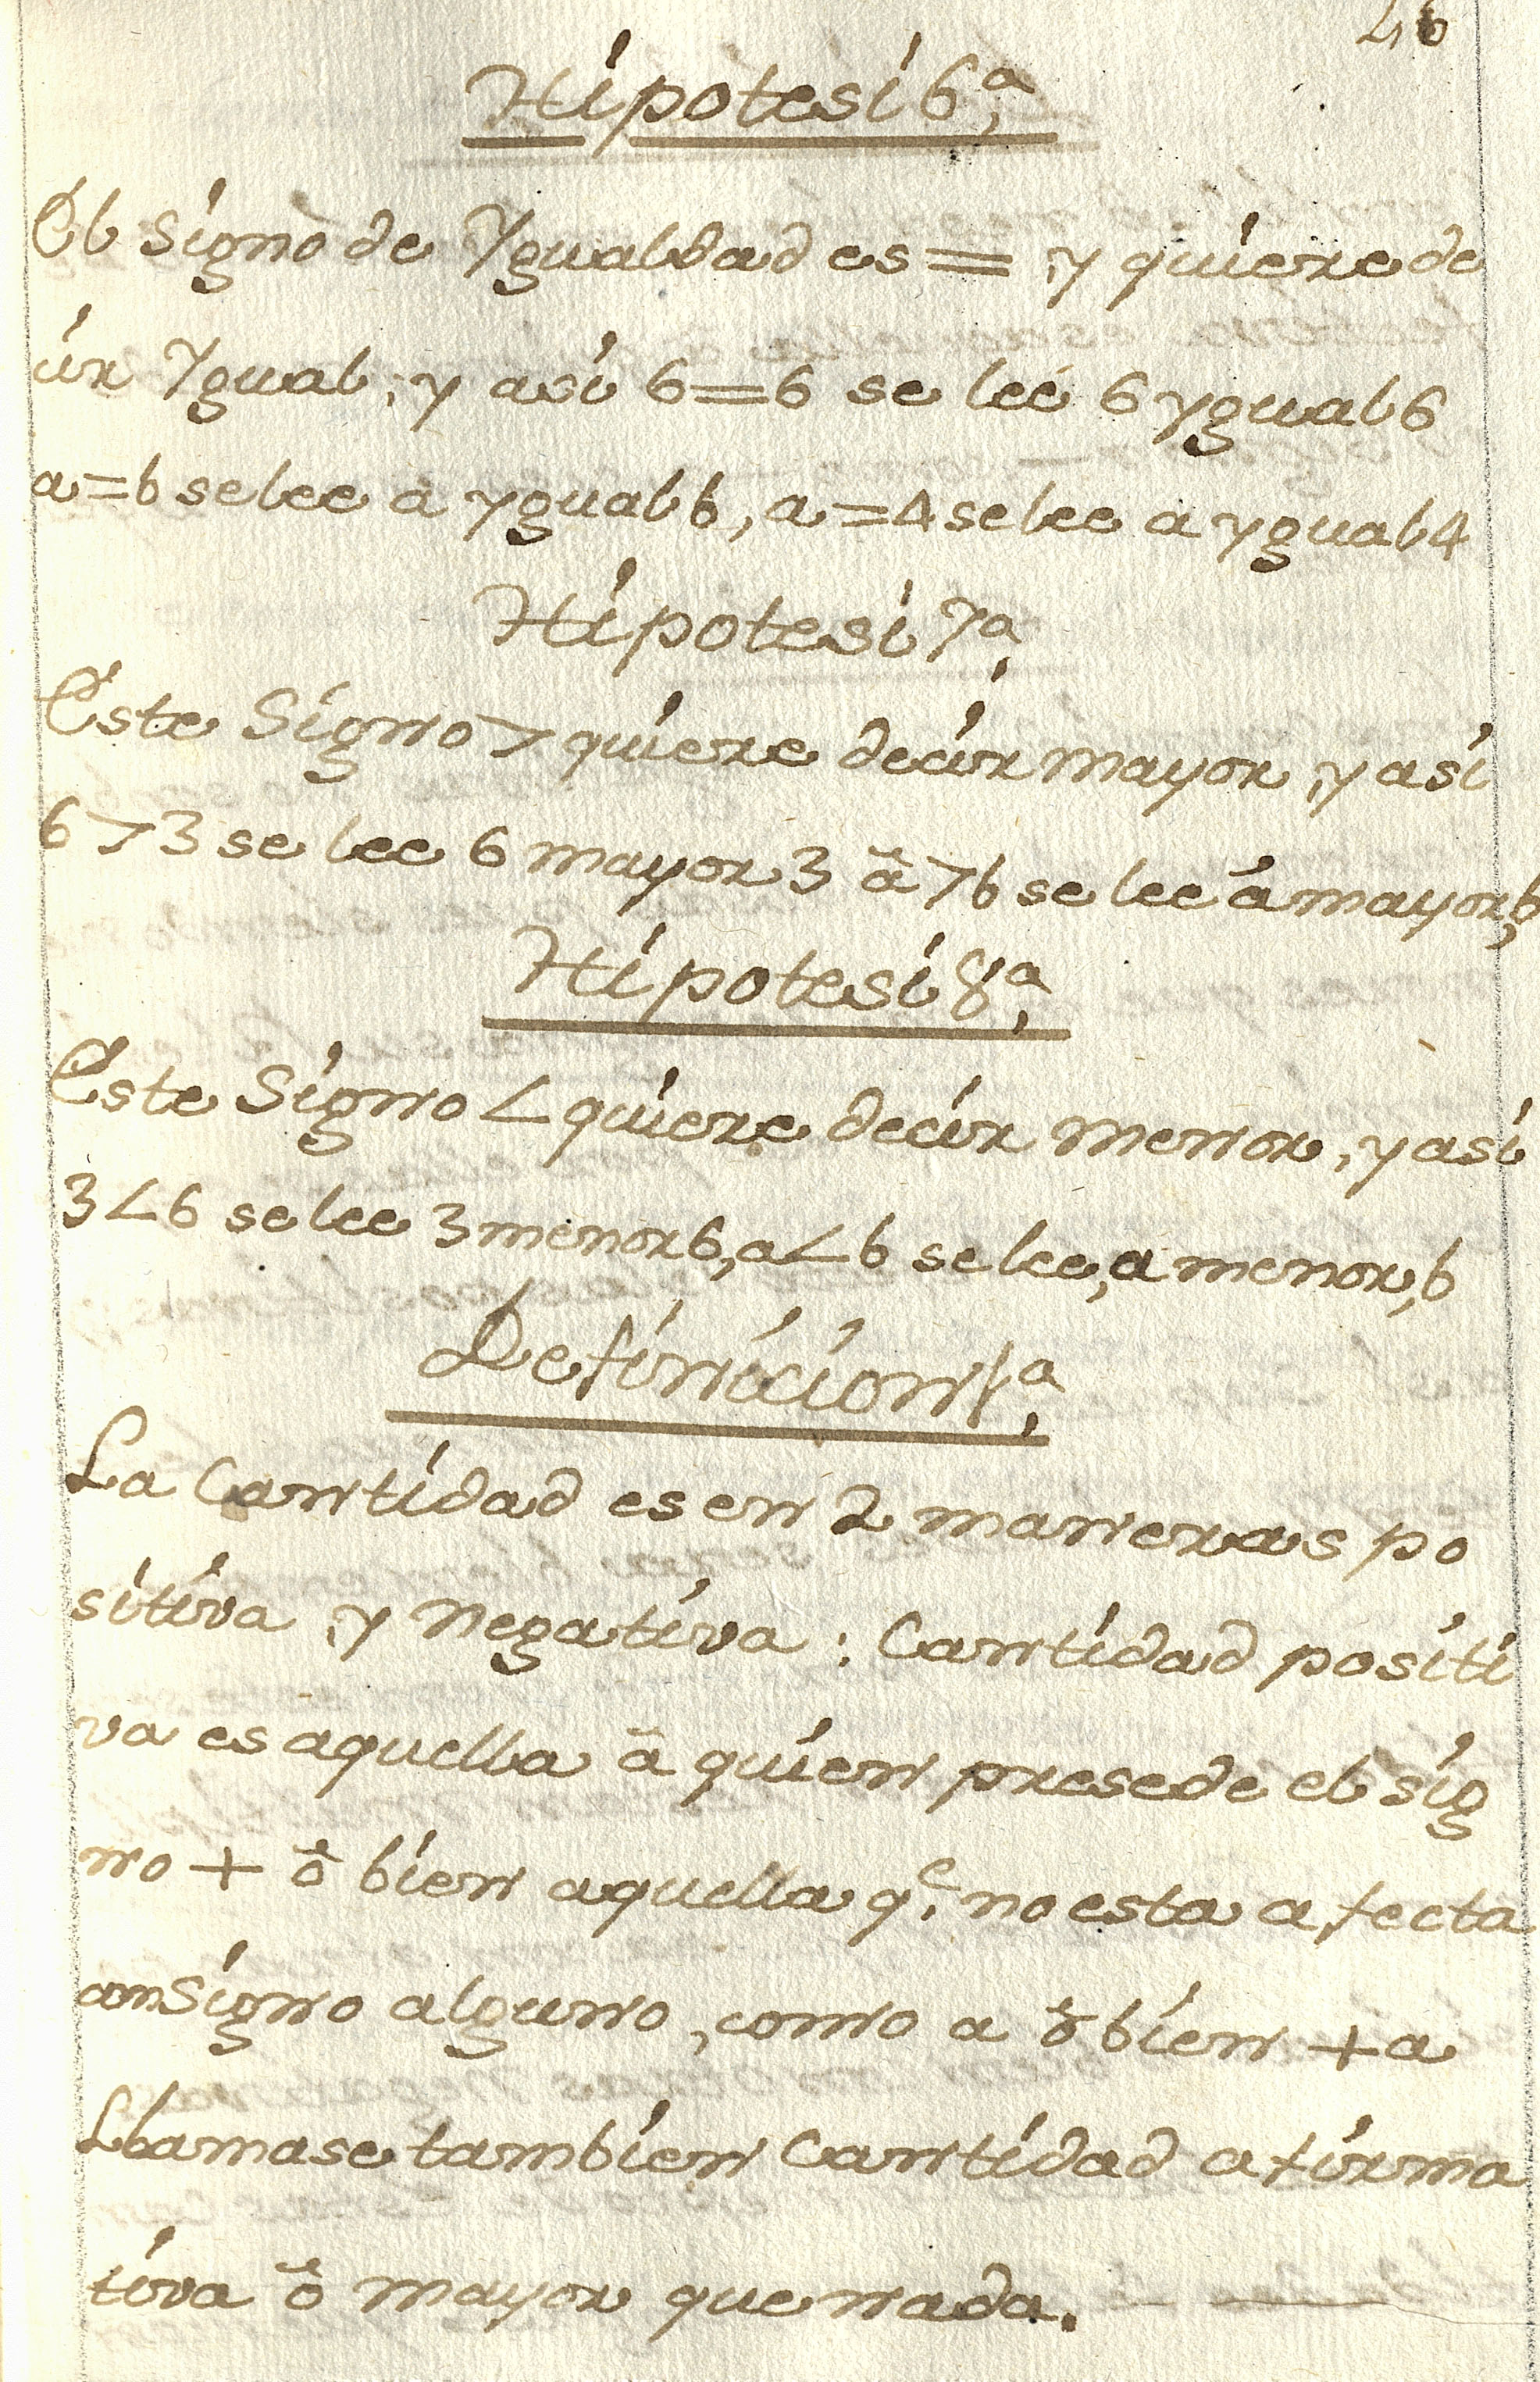 46
Hipotesi 6ª,
El Signo de Ygualdad es = y quiere de
cir Ygual, y asi 6=6 se leé 6 ygual 6
a=b se lee a ygual b, a=4 se lee a ygual 4
Hipotesi 7ª,
Este Signo > quiere decir mayor, y asi
6>3 se lee 6 mayor 3 ã >b se lee á mayor, b
Hipotesi 8ª,
Este Signo < quiere decir menor, y asi
3<6 se lee 3 menor 6, a<b se lee, a menor, b
Definicion 1ª,
La Cantidad es en 2 maneras po
sitiva y Negativa: Cantidad positi
va es aquella ã quien presede el sig
no + õ bien aquella q.e no esta afecta
con Signo alguno, como a õ bien +a
Llamase tambien Cantidad afirma
tiva õ mayor que nada.